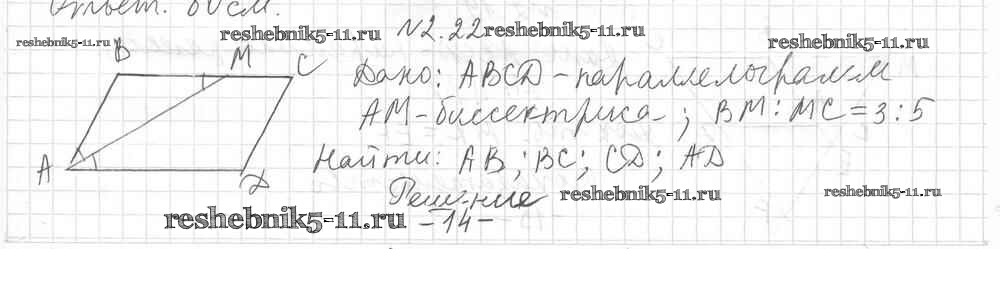 Ответ: 60 см.
№2.22 reshebnik5-11.ru
reshebnik5-11.ru
reshebnik5-11.ru
reshebnik5-11.ru
B M C
Дано: ABCD - параллелограмм
AM - биссектриса; BM : MC = 3 : 5
A D
Найти: AB; BC; CD; AD
Решение
reshebnik5-11.ru
reshebnik5-11.ru
reshebnik5-11.ru
-14-